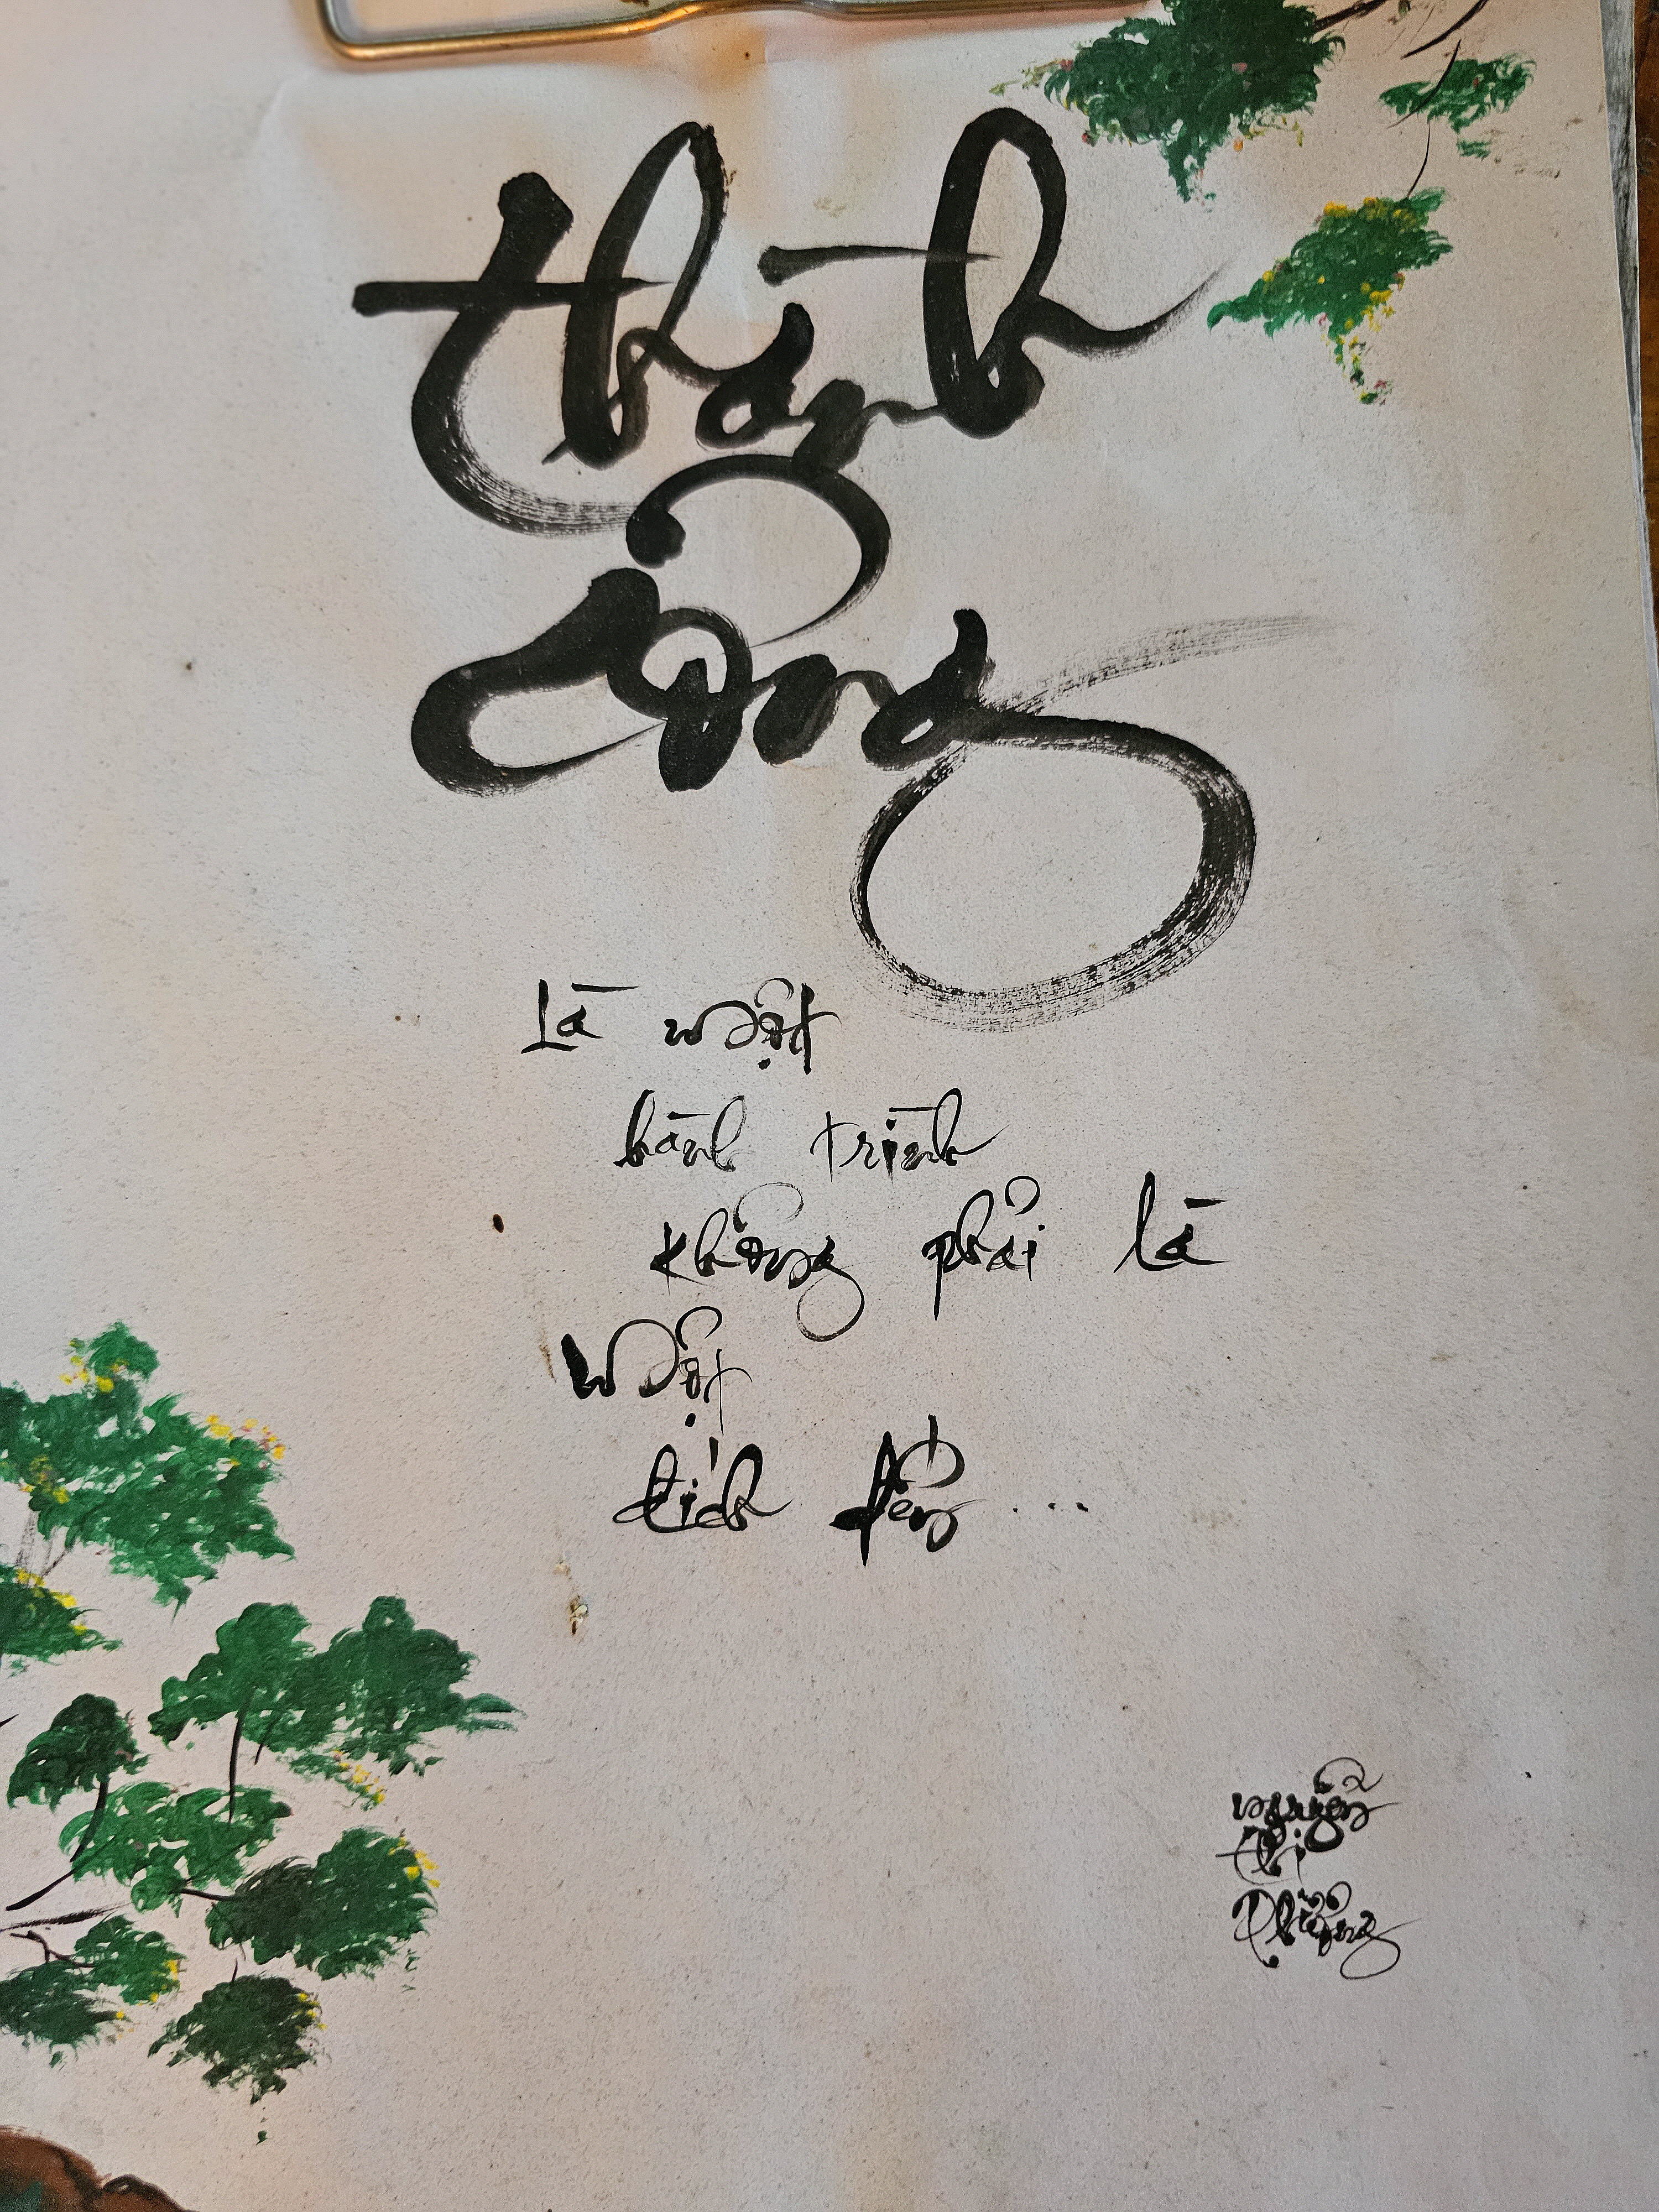 thành
công
Là một
hành trình
không phải là
một
đích đến ...
Nguyễn
thị
Phượng